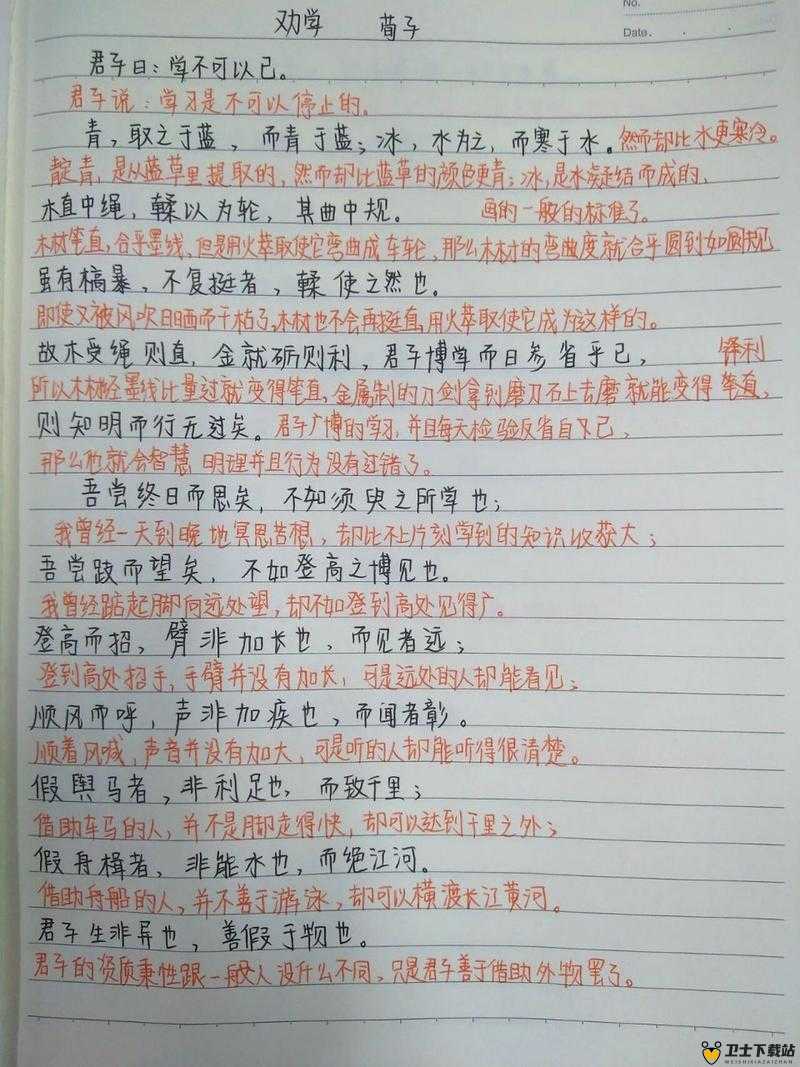 No.
Date.
劝学 荀子
君子曰：学不可以已。
君子说：学习是不可以停止的。
青，取之于蓝，而青于蓝；冰，水为之，而寒于水。然而却比水更寒冷。
靛青，是从蓝草里提取的，然而却比蓝草的颜色更青；冰，是水凝结而成的，
木直中绳，輮以为轮，其曲中规。 画的一般的标准了。
木材笔直，合乎墨线，但是用火萃取使它弯曲成车轮，那么木材的弯曲度就合乎圆到如圆规
虽有槁暴，不复挺者，輮使之然也。
即使又被风吹日晒而干枯了，木材也不会再挺直，用火萃取使它成为这样的。
故木受绳则直，金就砺则利，君子博学而日参省乎己， 锋利
所以木材经墨线比量过就变得笔直，金属制的刀剑拿到磨刀石上去磨就能变得笔直，
则知明而行无过矣。君子广博的学习，并且每天检验反省自己，
那么他就会智慧明理并且行为没有过错了。
吾尝终日而思矣，不如须臾之所学也；
我曾经一天到晚地冥思苦想，却比不上片刻学到的知识收获大；
吾尝跂而望矣，不如登高之博见也。
我曾经踮起脚向远处望，却不如登到高处见得广。
登高而招，臂非加长也，而见者远；
登到高处招手，手臂并没有加长，可是远处的人却能看见；
顺风而呼，声非加疾也，而闻者彰。
顺着风喊，声音并没有加大，可是听的人却能听得很清楚。
假舆马者，非利足也，而致千里；
借助车马的人，并不是脚走得快，却可以达到千里之外；
假舟楫者，非能水也，而绝江河。
借助舟船的人，并不善于游泳，却可以横渡长江黄河。
君子生非异也，善假于物也。
君子的资质秉性跟一般人没什么不同，只是君子善于借助外物罢了。
卫士下载站
WEISHIXIAZAIZHAN